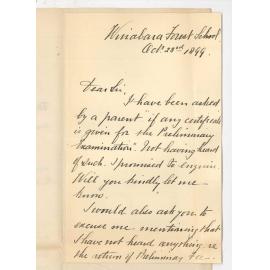 Wirrabara Forest School
Oct. 23rd 1899.
Dear Sir,
I have been asked
by a parent "if any certificate
is given for the Preliminary
Examination". Not having heard
of such I promised to enquire.
Will you kindly let me
know.
I would also ask you to
excuse me mentioning that
I have not heard anything re
the return of Preliminary